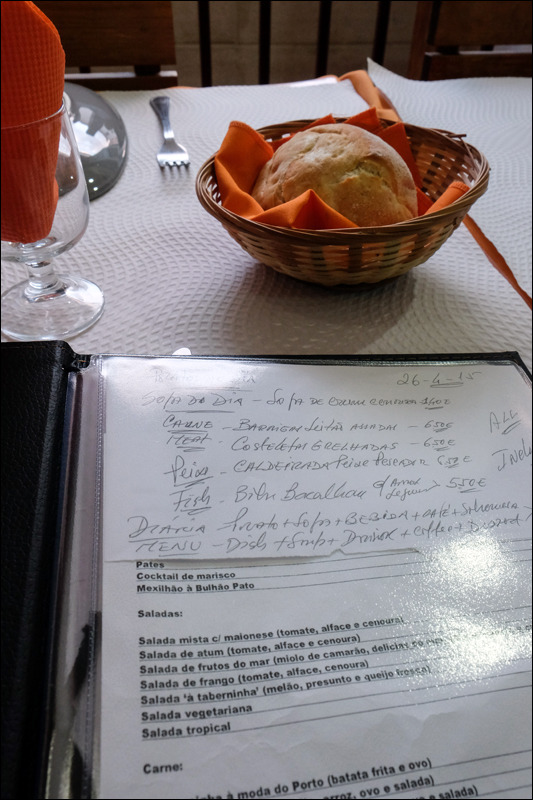 26-4-15
SOPA DO DIA - SOPA DE
CARNE - BARRIGA Leitão ASSADA - 6.50€ ALL
MEAT - Costeletas GRELHADAS - 6.50€
Peixe - CALDEIRADA Peixe PESCADOR 6.50€
Fish - Bacalhau c/ Arroz Legumes 5.50€
DIARIA Prato + Sopa + BEBIDA + CAFÉ + Sobremesa
MENU - Dish + Soup + Drink + Coffee + Dessert
Pates
Cocktail de marisco
Mexilhão à Bulhão Pato
Saladas:
Salada mista c/ maionese (tomate, alface e cenoura)
Salada de atum (tomate, alface e cenoura)
Salada de frutos do mar (miolo de camarão, delícias do mar
Salada de frango (tomate, alface, cenoura)
Salada 'à taberninha' (melão, presunto e queijo fresco)
Salada vegetariana
Salada tropical
Carne:
à moda do Porto (batata frita e ovo)
arroz, ovo e salada)